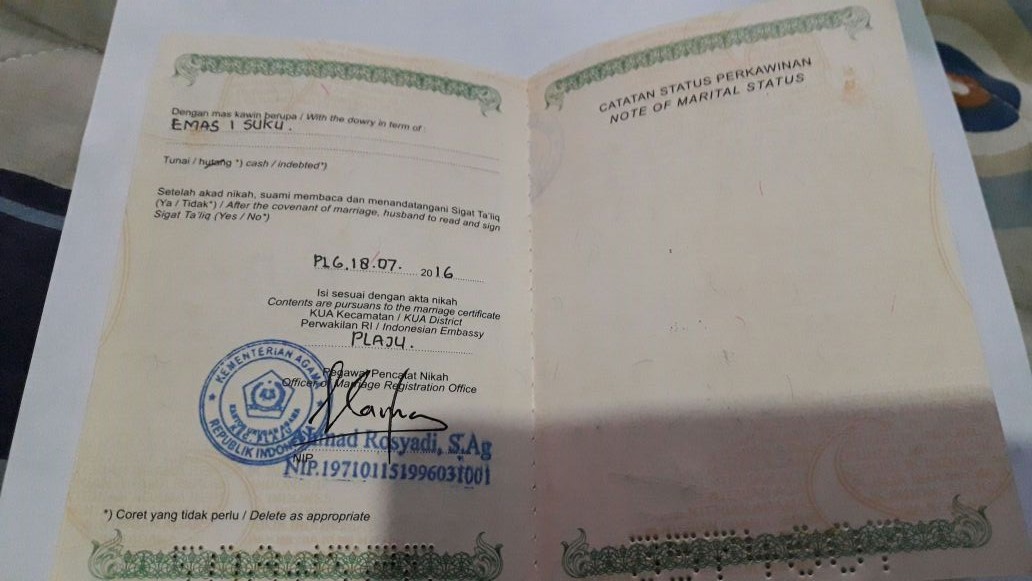 Dengan mas kawin berupa / With the dowry in term of :
EMAS 1 SUKU.
Tunai / hutang *) cash / indebted*)
Setelah akad nikah, suami membaca dan menandatangani Sigat Ta'liq
(Ya / Tidak*) / After the covenant of marriage, husband to read and sign
Sigat Ta'liq (Yes / No*)
PLG, 18.07. 2016
Isi sesuai dengan akta nikah
Contents are pursuans to the marriage certificate
KUA Kecamatan / KUA District
Perwakilan RI / Indonesian Embassy
PLAJU.
Pegawai Pencatat Nikah
Officer of Marriage Registration Office
KEMENTERIAN AGAMA
KANTOR URUSAN AGAMA
KEC. PLAJU
REPUBLIK INDONESIA
Rosyadi, S.Ag
NIP.
NIP. 197101151996031001
*) Coret yang tidak perlu / Delete as appropriate
CATATAN STATUS PERKAWINAN
NOTE OF MARITAL STATUS